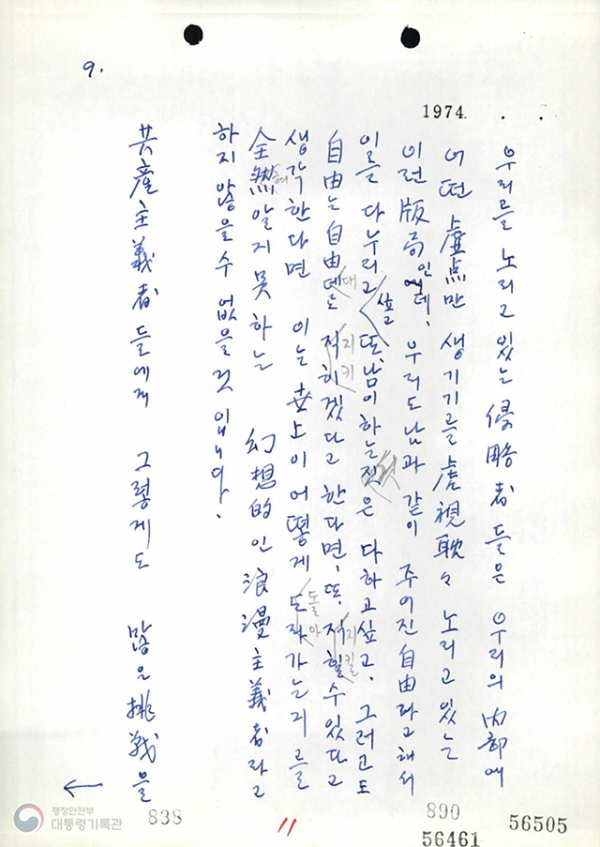 9.
1974. . .
우리를 노리고 있는 侵略者들은 우리의 內部에
어떤 虛点만 생기기를 虎視耽々 노리고 있는
이런 版局인데, 우리도 남과 같이 주어진 自由라고 해서
이를 다 누리고 싶고 또, 남이 하는 짓은 다하고 싶고, 그러고도
自由는 自由대로 지키겠다고 한다면, 또, 지킬 수 있다고
생각한다면 이는 世上이 어떻게 돌아가는지를
全然 알지 못하는 幻想的인 浪漫主義者라고
하지 않을 수 없을 것입니다.
共産主義者들에게 그렇게도 많은 挑戰을
행정안전부
대통령기록관
838
11
890
56461
56505